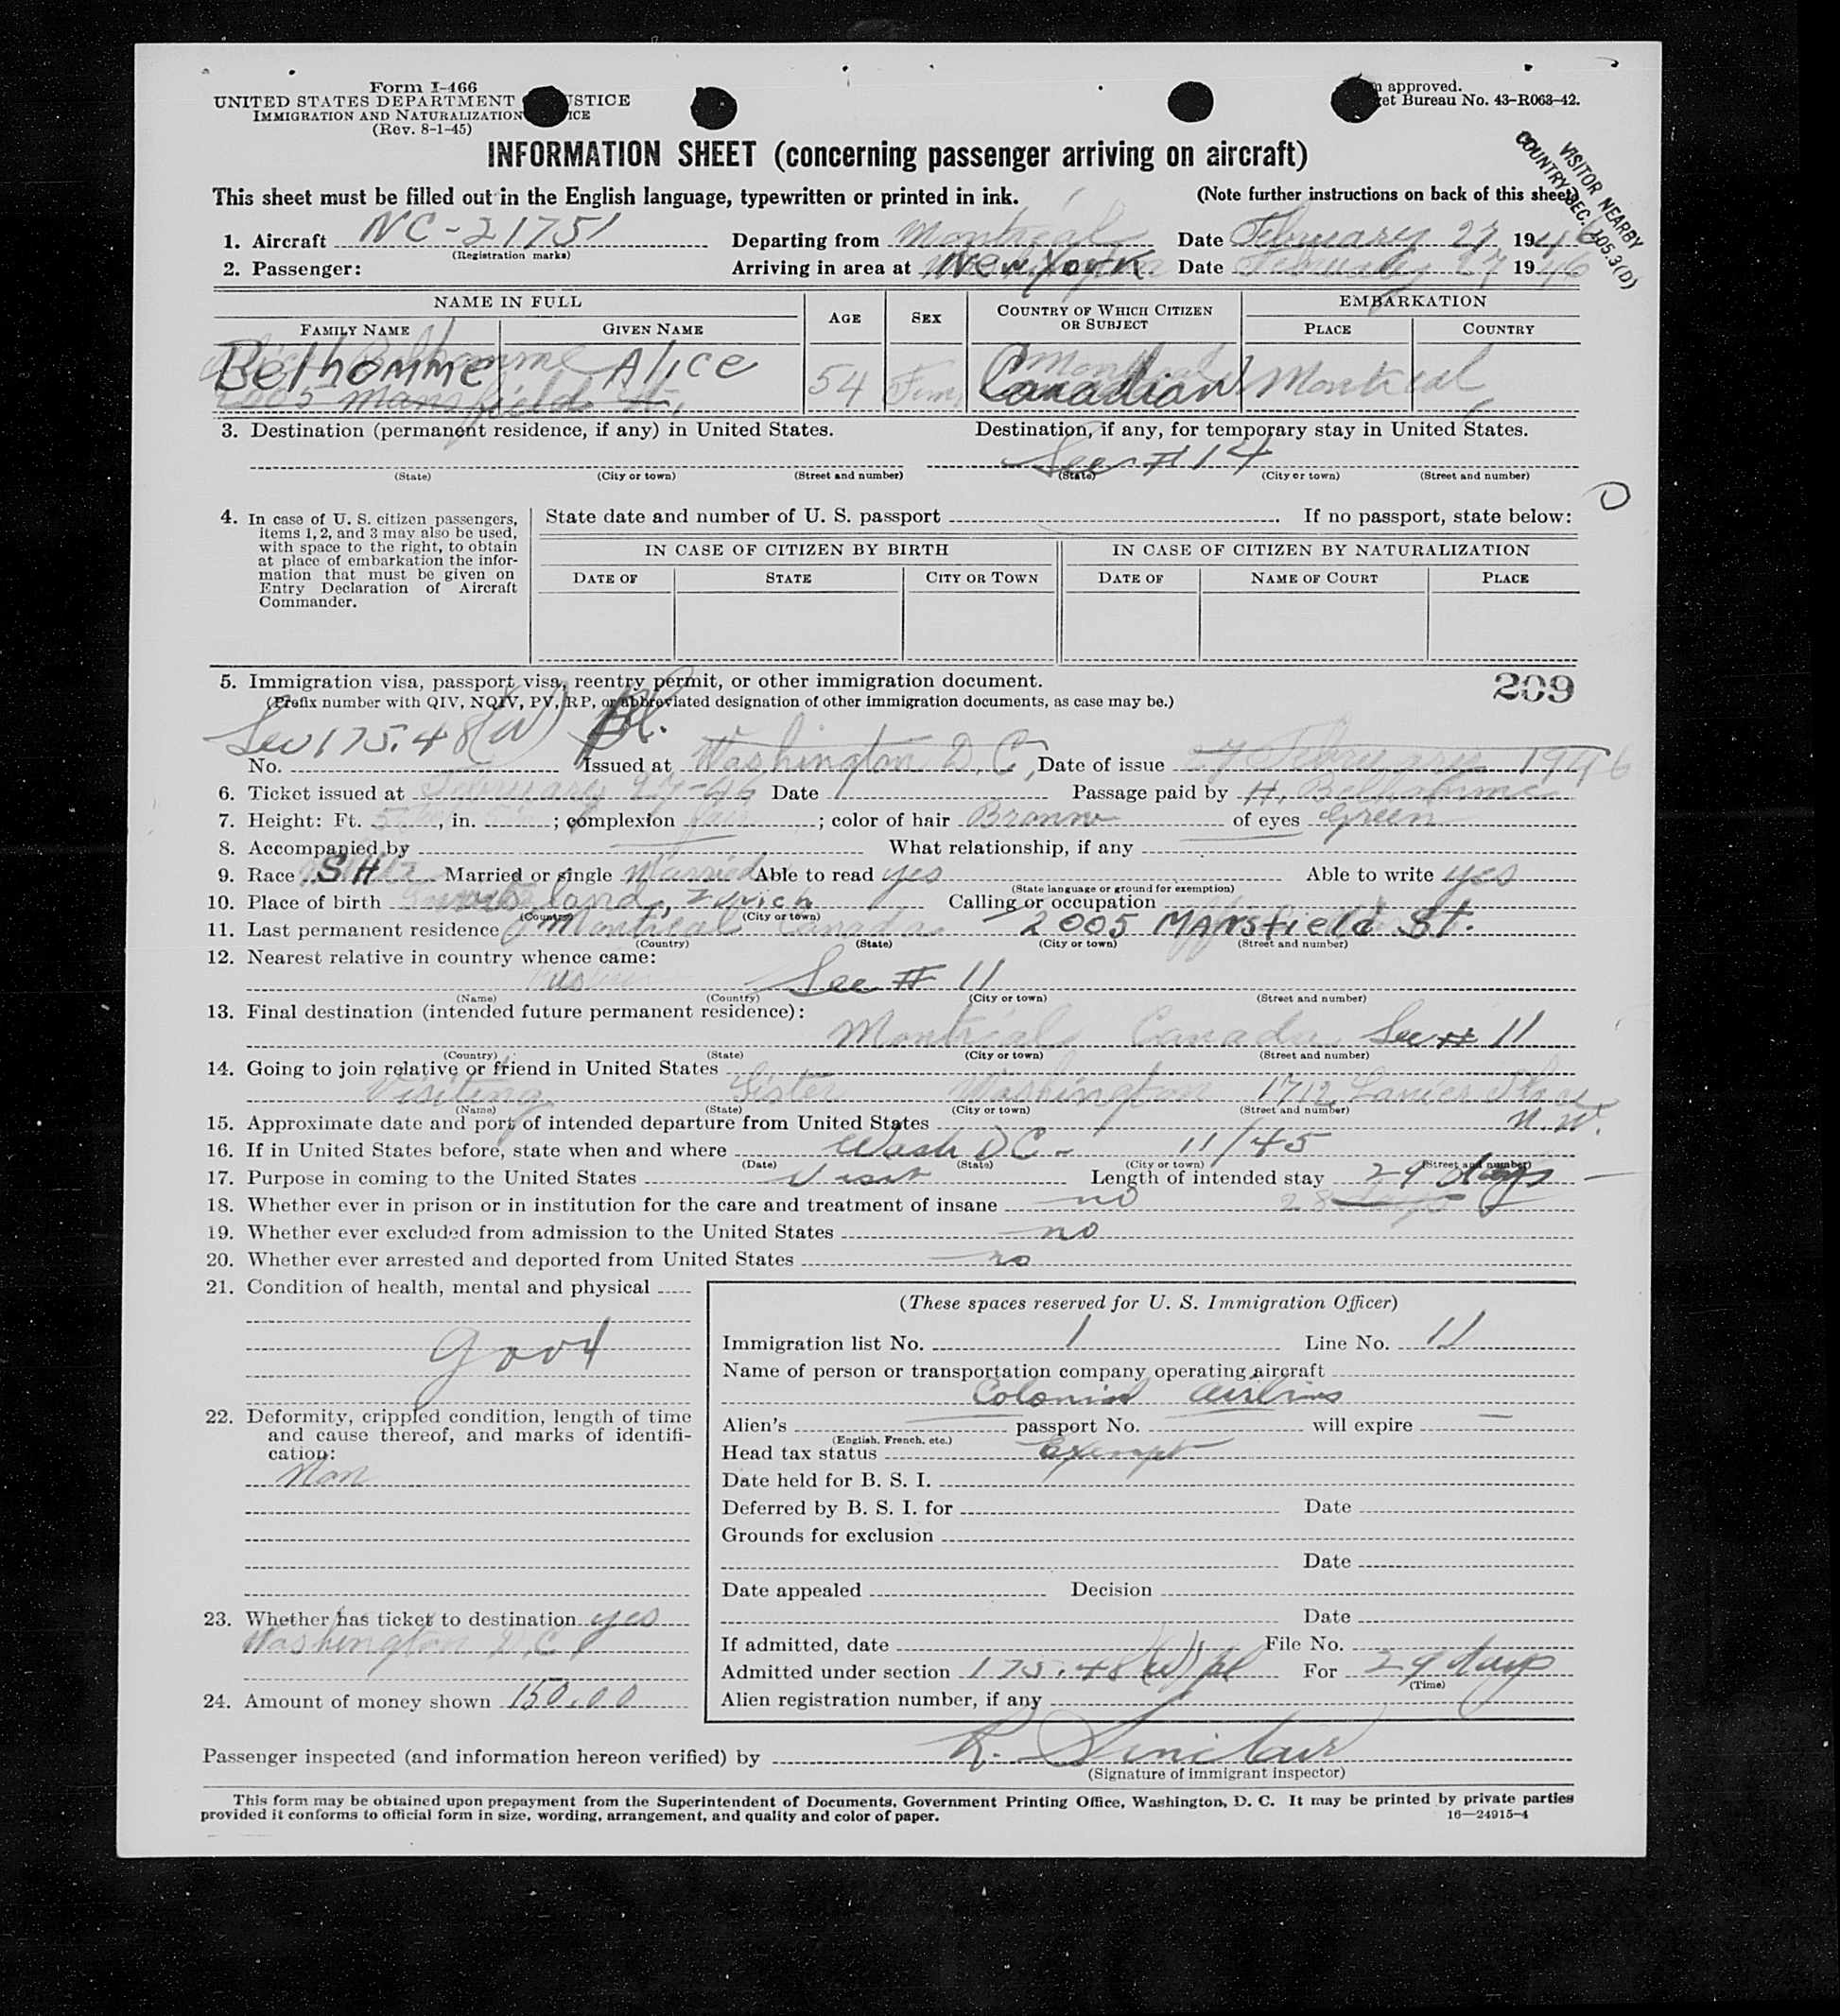 Form I-466
UNITED STATES DEPARTMENT JUSTICE
IMMIGRATION AND NATURALIZATION
(Rev. 8-1-45)
approved.
Bureau No. 43-R063-42.
VISITOR NEARBY
COUNTRY SEC. 105.3(D)
INFORMATION SHEET (concerning passenger arriving on aircraft)
This sheet must be filled out in the English language, typewritten or printed in ink. (Note further instructions on back of this sheet)
1. Aircraft NC-21751 Departing from Montreal Date February 27 1946
(Registration marks)
2. Passenger: Arriving in area at New York Date February 27 1946
NAME IN FULL AGE SEX COUNTRY OF WHICH CITIZEN OR SUBJECT EMBARKATION
FAMILY NAME GIVEN NAME PLACE COUNTRY
Belhomme Alice 54 Fem. Canadian Montreal
2005 Mansfield St,
3. Destination (permanent residence, if any) in United States. Destination, if any, for temporary stay in United States.
See # 14
(State) (City or town) (Street and number) (State) (City or town) (Street and number)
4. In case of U. S. citizen passengers, items 1, 2, and 3 may also be used, with space to the right, to obtain at place of embarkation the information that must be given on Entry Declaration of Aircraft Commander.
State date and number of U. S. passport . If no passport, state below:
IN CASE OF CITIZEN BY BIRTH IN CASE OF CITIZEN BY NATURALIZATION
DATE OF STATE CITY OR TOWN DATE OF NAME OF COURT PLACE
5. Immigration visa, passport visa, reentry permit, or other immigration document. 209
(Prefix number with QIV, NQIV, PV, RP, or abbreviated designation of other immigration documents, as case may be.)
Sec 175.48(W)
No. Issued at Washington D.C, Date of issue 27 February 1946
6. Ticket issued at February 27-46 Date Passage paid by H. Belhomme
7. Height: Ft. , in. ; complexion fair ; color of hair Bronne of eyes Green
8. Accompanied by What relationship, if any
9. Race Married or single Married Able to read yes Able to write yes
(State language or ground for exemption)
10. Place of birth Switzerland, Zurich Calling or occupation
(Country) (City or town)
11. Last permanent residence Montreal Canada 2005 Mansfield St.
(Country) (State) (City or town) (Street and number)
12. Nearest relative in country whence came:
See # 11
(Name) (Country) (City or town) (Street and number)
13. Final destination (intended future permanent residence):
Montreal Canada See # 11
(Country) (State) (City or town) (Street and number)
14. Going to join relative or friend in United States
Visiting Sister Washington 1712 Lanier Place
(Name) (State) (City or town) (Street and number)
N.W.
15. Approximate date and port of intended departure from United States
16. If in United States before, state when and where Wash DC - 11/45
(Date) (State) (City or town) (Street and number)
17. Purpose in coming to the United States Visit Length of intended stay 29 days
18. Whether ever in prison or in institution for the care and treatment of insane no 28 days
19. Whether ever excluded from admission to the United States no
20. Whether ever arrested and deported from United States no
21. Condition of health, mental and physical
good
22. Deformity, crippled condition, length of time and cause thereof, and marks of identification:
Non
23. Whether has ticket to destination yes
Washington D.C,
24. Amount of money shown 150.00
(These spaces reserved for U. S. Immigration Officer)
Immigration list No. 1 Line No. 11
Name of person or transportation company operating aircraft
Colonial Airlines
Alien's passport No. will expire
(English, French, etc.)
Head tax status Exempt
Date held for B. S. I.
Deferred by B. S. I. for Date
Grounds for exclusion
Date
Date appealed Decision
Date
If admitted, date File No.
Admitted under section 175.48(W) For 29 days
(Time)
Alien registration number, if any
Passenger inspected (and information hereon verified) by R. Sinclair
(Signature of immigrant inspector)
This form may be obtained upon prepayment from the Superintendent of Documents, Government Printing Office, Washington, D. C. It may be printed by private parties
provided it conforms to official form in size, wording, arrangement, and quality and color of paper. 16—24915-4